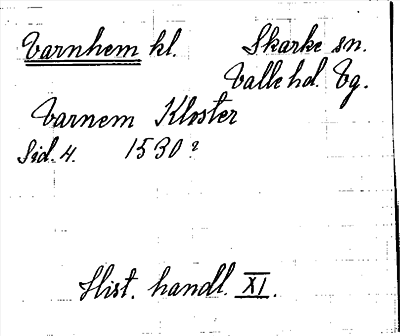 Varnhem kl. Skarke sn.
Valle hd. Vg.
Varnem Kloster
Sid. 4. 1530?
Hist. handl. XI.